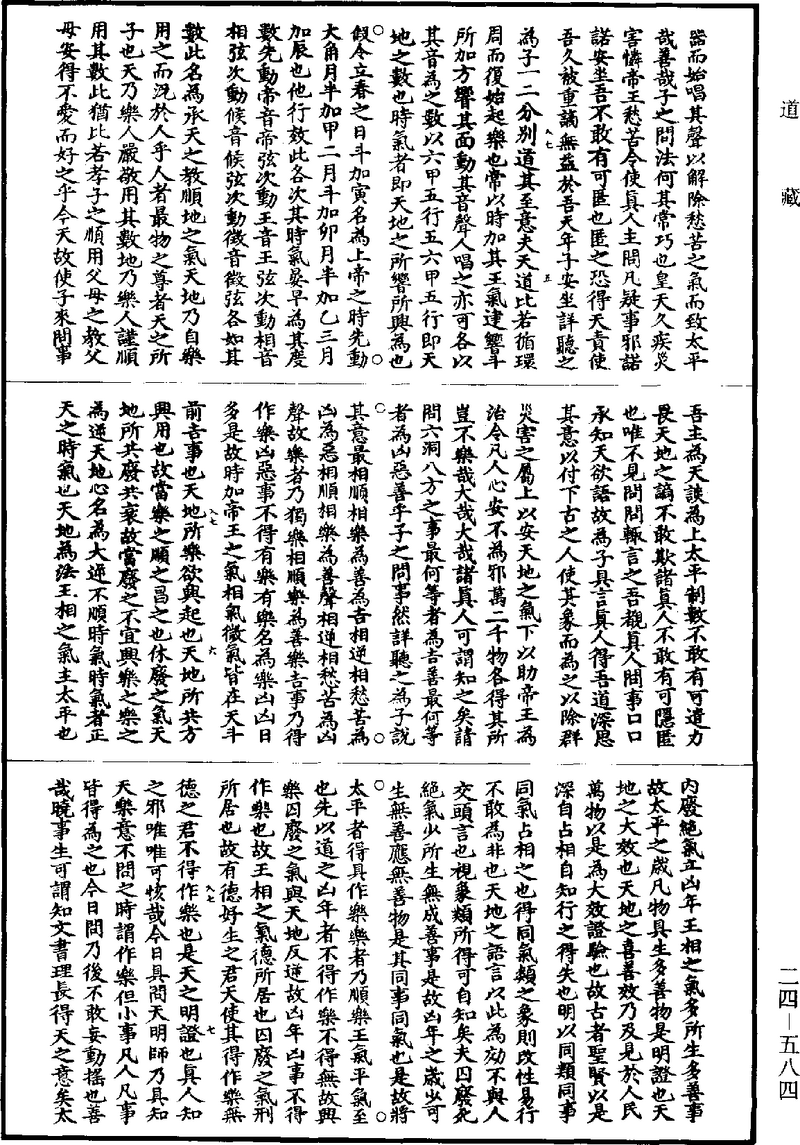 道藏
器而始唱其聲以解除愁苦之氣而致太平
哉善哉子之問法何其常巧也皇天久疾災
害憐帝王愁苦令使真人主問凡疑事邪諾
諾安坐吾不敢有可匿也匿之恐得天責使
吾久被重謫無益於吾天年子安坐詳聽之
為子一二分別道其至意夫天道比若循環
周而復始起樂也常以時加其王氣建響斗
所加方響其面動其音聲人唱之亦可各以
其音為之數以六甲五行五六甲五行即天
地之數也時氣者即天地之所響所興為也
假令立春之日斗加寅名為上帝之時先動
大角月半加甲二月斗加卯月半加乙三月
加辰也他行效此各次其時氣晏早為其度
數先動帝音帝弦次動王音王弦次動相音
相弦次動候音候弦次動徵音徵弦各如其
數此名為承天之教順地之氣天地乃自樂
用之而況於人乎人者最物之尊者天之所
子也天乃樂人嚴敬用其數地乃樂人謹順
用其數此猶比若孝子之順用父母之教父
母安得不愛而好之乎今天故使子來問事
吾主為天談為上太平制數不敢有可遺力
畏天地之謫不敢欺諸真人不敢有可隱匿
也唯不見問問輒言之吾觀真人問事口口
承知天欲語故為子具言真人得吾道深思
其意以付下古之人使其象而為之以除群
災害之屬上以安天地之氣下以助帝王為
治令凡人心安不為邪萬二千物各得其所
豈不樂哉大哉大哉諸真人可謂知之矣請
問六洞八方之事最何等者為吉善最何等
者為凶惡善乎子之問事然詳聽之為子說
其意最相順相樂為善為吉相逆相愁苦為
凶為惡相順相樂為善聲相逆相愁苦為凶
聲故樂者乃獨樂相順樂為善樂吉事乃得
作樂凶惡事不得有樂有樂名為樂凶凶日
多是故時加帝王之氣相氣微氣皆在天斗
前吉事也天地所樂欲興起也天地所共方
興用也故當樂之順之昌之也休廢之氣天
地所共廢共衰故當廢之不宜興樂之樂之
為逆天地心名為大逆不順時氣時氣者正
天之時氣也天地為法王相之氣主太平也
內廢絕氣立凶年王相之氣多所生多善事
故太平之歲凡物具生多善物是明證也天
地之大效也天地之喜善效乃及見於人民
萬物以是為大效證驗也故古者聖賢以是
深自占相自知行之得失也明以同類同事
同氣占相之也得同氣類之象則改性易行
不敢為非也天地之語言以此為効不與人
交頭言也視象類所得可自知矣夫囚廢死
絕氣少所生無成善事是故凶年之歲少可
生無善應無善物是其同事同氣也是故將
太平者得具作樂樂者乃順樂王氣平氣至
也先以道之凶年者不得作樂不得無故興
樂囚廢之氣與天地反逆故凶年凶事不得
作樂也故王相之氣德所居也囚廢之氣刑
所居也故有德好生之君天使其得作樂無
德之君不得作樂也是天之明證也真人知
之邪唯唯可恢哉今日具問天明師乃具知
天樂意不問之時謂作樂但小事凡人凡事
皆得為之也今日問乃後不敢妄動搖也善
哉曉事生可謂知文書理長得天之意矣太
二四—五八四